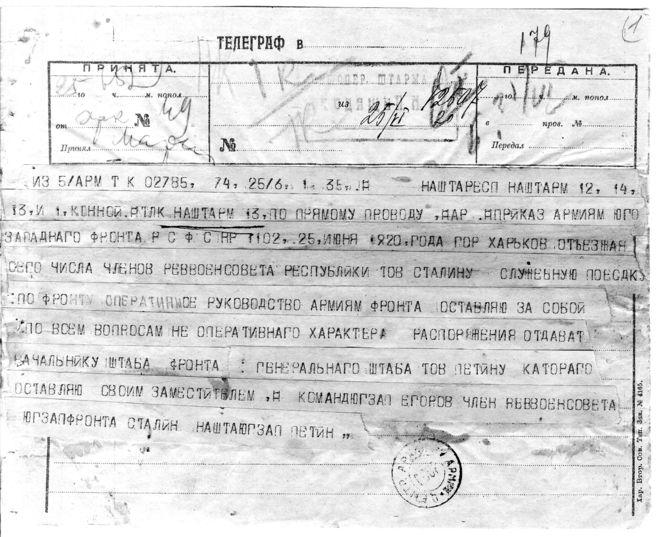 1
179
ТЕЛЕГРАФ В
ПРИНЯТА.
ПЕРЕДАНА.
ОПЕР. ШТАРМА
го ч. м. попол
из
25/VI
го ч. м. попол
от
№ 49
в пров. №
Принял
№
Передал
ИЗ 5/АРМ Т К 02785, 74, 25/6, 1 35, Д НАШТАРЕСП НАШТАРМ 12, 14,
13, И 1, КОННОЙ НАШТАРМ 13, ПО ПРЯМОМУ ПРОВОДУ ПРИКАЗ АРМИЯМ ЮГО
ЗАПАДНАГО ФРОНТА Р С Ф С 25, ИЮНЯ 1920, ГОДА ГОР ХАРЬКОВ ОТЬЕЗЖАЯ
СЕГО ЧИСЛА ЧЛЕНОВ РЕВВОЕНСОВЕТА РЕСПУБЛИКИ ТОВ СТАЛИНУ СЛУЖЕБНУЮ ПОЕДКУ
:ПО ФРОНТУ РУКОВОДСТВО АРМИЯМ ФРОНТА ОСТАВЛЯЮ ЗА СОБОЙ
:ПО ВСЕМ ВОПРОСАМ НЕ ОПЕРАТИВНАГО ХАРАКТЕРА РАСПОРЯЖЕНИЯ ОТДАВАТ
НАЧАЛЬНИКУ ШТАБА ФРОНТА : ГЕНЕРАЛЬНАГО ШТАБА ТОВ ПЕТИНУ КАТОРАГО
ОСТАВЛЯЮ СВОИМ ЗАМЕСТИТЕЛЕМ, Д КОМАНДЮГЗАП ЕГОРОВ ЧЛЕН РЕВВОЕНСОВЕТА
ЮГЗАПФРОНТА СТАЛИН НАШТАЮГЗАП ПЕТИН „
Хар. Втор. Сов. Тип. Зак. № 4165.